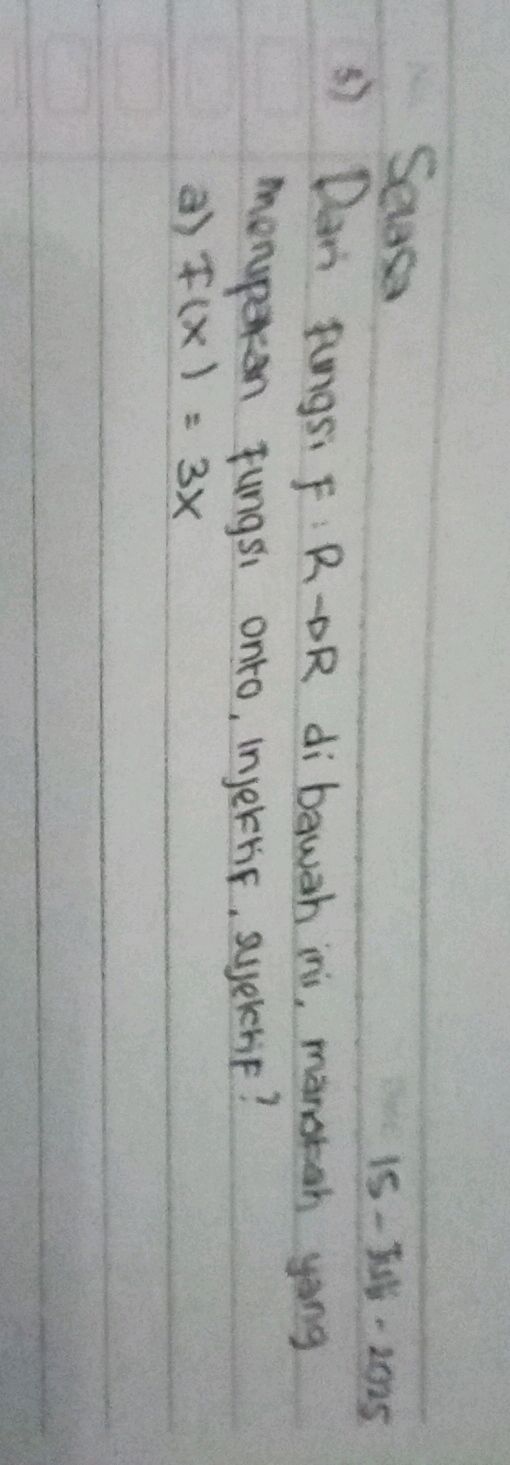 Selasa
15 - Juli - 2025
5) Dari fungsi F : R → R di bawah ini, manakah yang
merupakan fungsi onto, injektif, surjektif?
a) f(x) = 3x